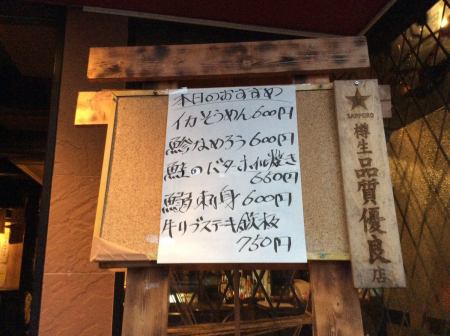 本日のおすすめ
イカそうめん600円
鯵なめろう600円
鮭のバターホイル焼き
660円
鯛刺身600円
牛リブステーキ鉄板
750円
SAPPORO
樽生品質優良店